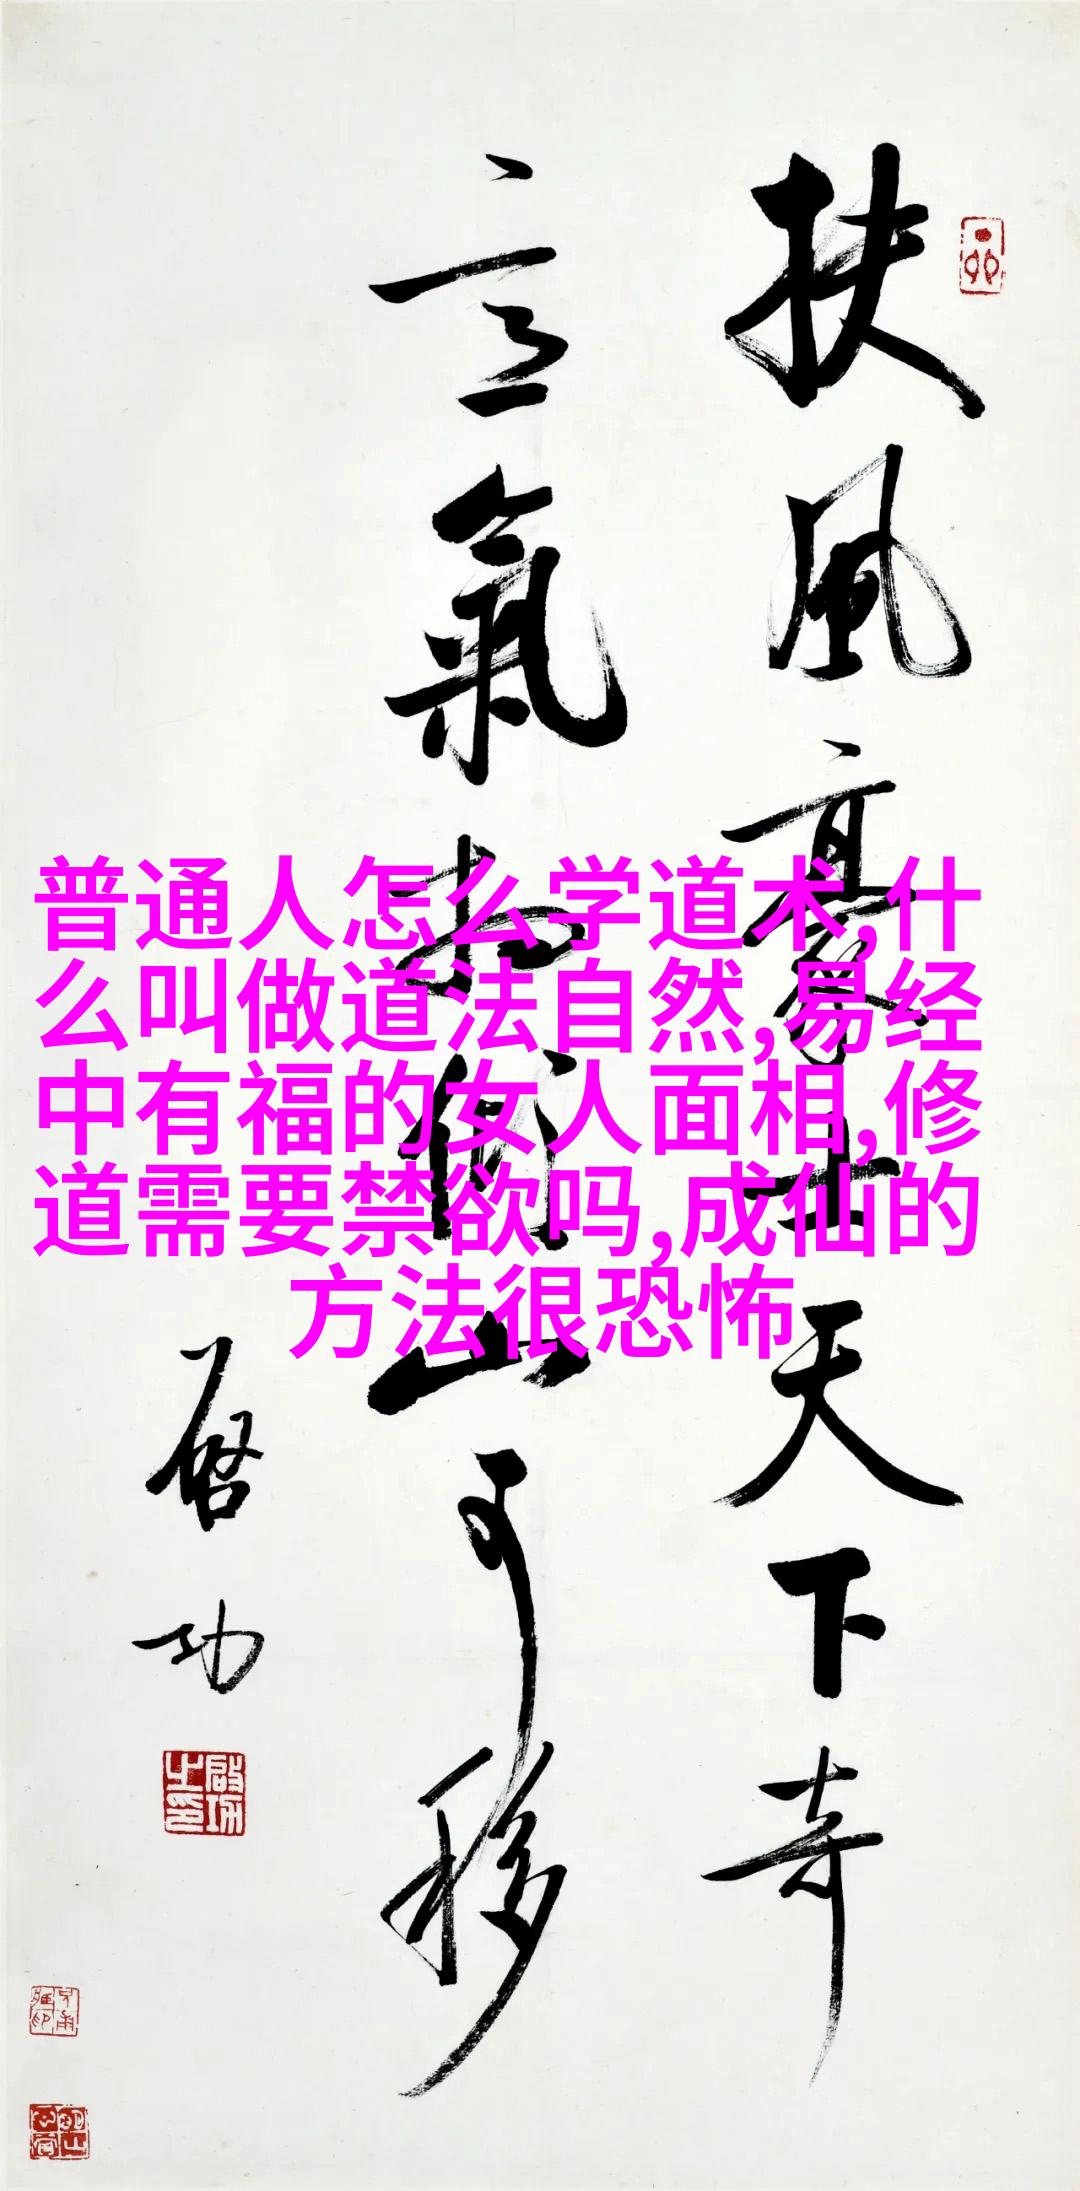 扶風豪士天下奇
意氣相傾山可移
啟功
啟功之印
普通人怎么学道术,什
么叫做道法自然,易经
中有福的女人面相,修
道需要禁欲吗,成仙的
方法很恐怖